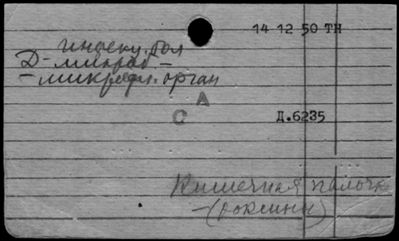 14 12 50 ТН
инфекц. бол
Д-микроб -
- микрофл. орган
А
С
Д.6235
Кишечная палочка
- (токсины)